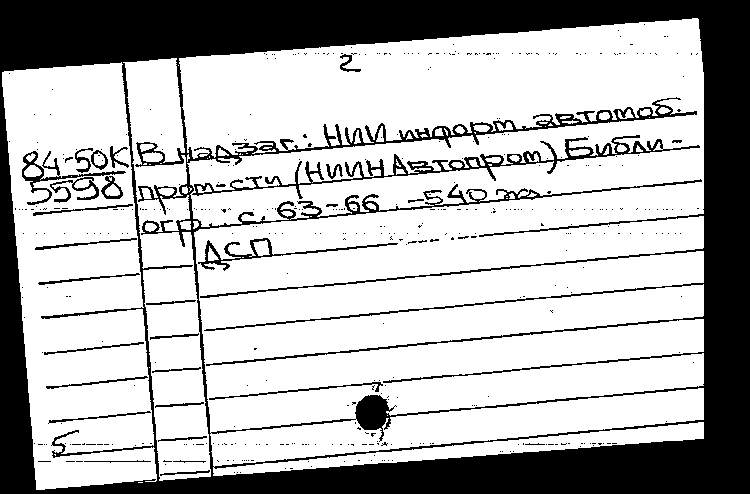 2
84-50К В надзаг.: НИИ информ. автомоб.
5598 пром-сти (НИИНАвтопром) Библи-
огр.: с. 63-66. -540 экз.
ДСП
5